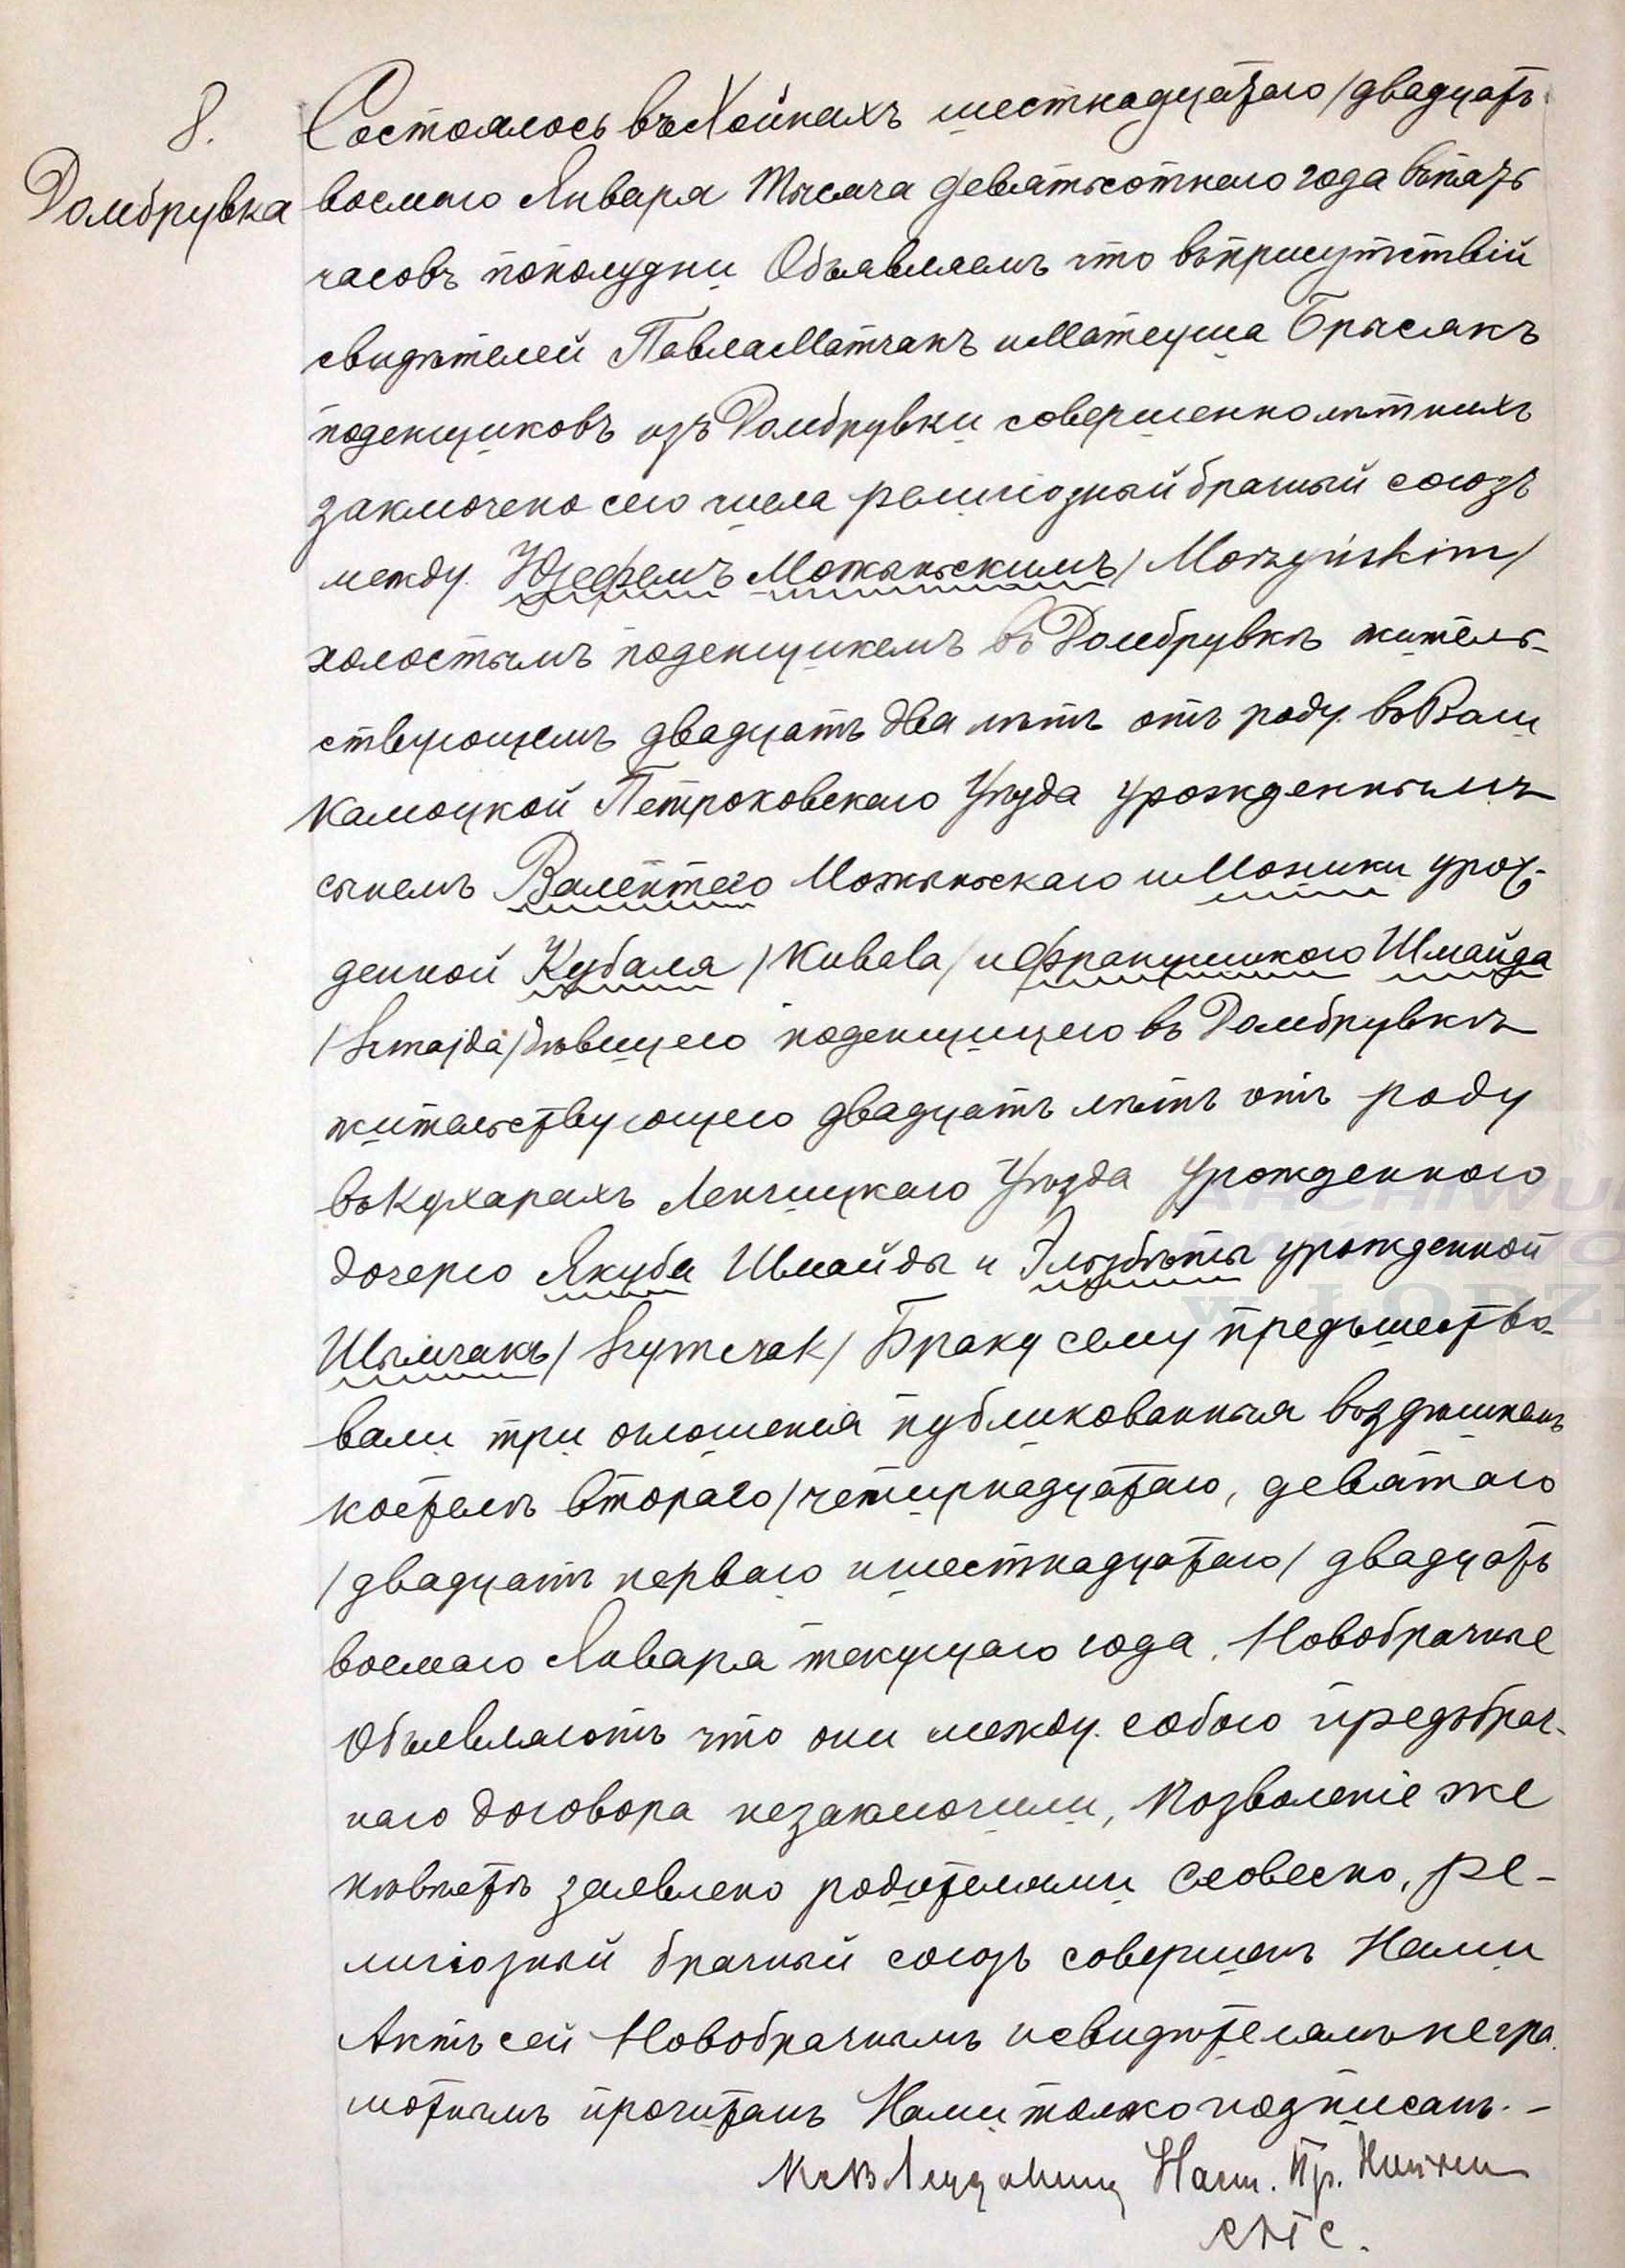 8.
Домбрувка
Состоялось въ Хойнахъ шестнадцатаго /двадцать
восьмаго Января тысяча девятьсотнаго года въ пять
часовъ пополудни Объявляемъ что въ присутствіи
свидѣтелей Павла Матчакъ и Матеуша Брысякъ
поденщиковъ изъ Домбрувки совершеннолѣтнихъ
заключено сего числа религіозный брачный союзъ
между Юзефемъ Можыньскимъ /Morzyńskim/
холостымъ поденщикемъ въ Домбрувкѣ житель-
ствующемъ двадцать два лѣтъ отъ роду въ Воли
Камоцкой Петроковскаго Уѣзда урожденнымъ
сынемъ Валентего Можыньскаго и Моники урож-
денной Кубаля /Kubala/ и Францишкою Шмайда
/Szmajda/ дѣвицею поденщицею въ Домбрувкѣ
жительствующею двадцать лѣтъ отъ роду
въ Кухарахъ Ленчицкаго Уѣзда Урожденною
дочерью Якуба Шмайды и Эльзбѣты урожденной
Шымчакъ /Szymczak/ Браку сему предъшество-
вали три оглошенія публикованныя въ здѣшнемъ
костелѣ втораго /четырнадцатаго, девятаго
/двадцать перваго и шестнадцатаго/ двадцать
восьмаго Января текущаго года. Новобрачные
Объявляютъ что они между собою предъбрач-
наго договора незаключили, Позволеніе же
невѣстѣ заявлено родителями словесно, ре-
лигіозный брачный союзъ совершенъ Нами
Актъ сей Новобрачнымъ и свидѣтелямъ негра-
мотнымъ прочитанъ Нами только подписанъ. -
Наст. Пр. Хойны
ARCHIWUM
w ŁODZI